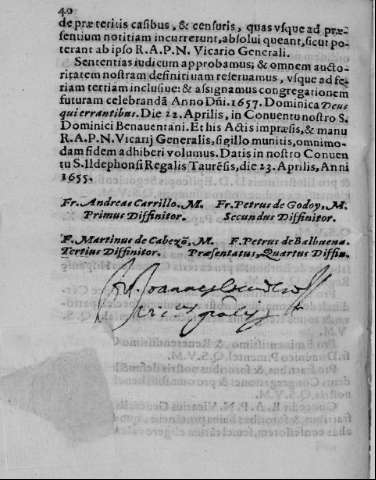 40
de præteritis casibus, & censuris, quas vsque ad præ-
sentium notitiam incurrerunt, absolui queant, sicut po-
terant ab ipso R.A.P.N. Vicario Generali.
Sententias iudicum approbamus, & omnem aucto-
ritatem nostram definitiuam reseruamus, vsque ad fe-
riam tertiam inclusiue: & assignamus congregationem
futuram celebrandā Anno Dñi. 1657. Dominica Deus
qui errantibus. Die 22. Aprilis, in Conuentu nostro S.
Dominici Benauentani. Et his Actis impræsis, & manu
R.A.P.N. Vicarij Generalis, sigillo munitis, omnimo-
dam fidem adhiberi volumus. Datis in nostro Conuen
tu S. Ildephonsi Regalis Taurēsis, die 23. Aprilis, Anni
1655.
Fr. Andreas Carrillo, M. Fr. Petrus de Godoy, M.
Primus Diffinitor. Secundus Diffinitor.
F. Martinus de Cabezō, M. F. Petrus de Balbuena
Tertius Diffinitor. Præsentatus, Quartus Diffin.